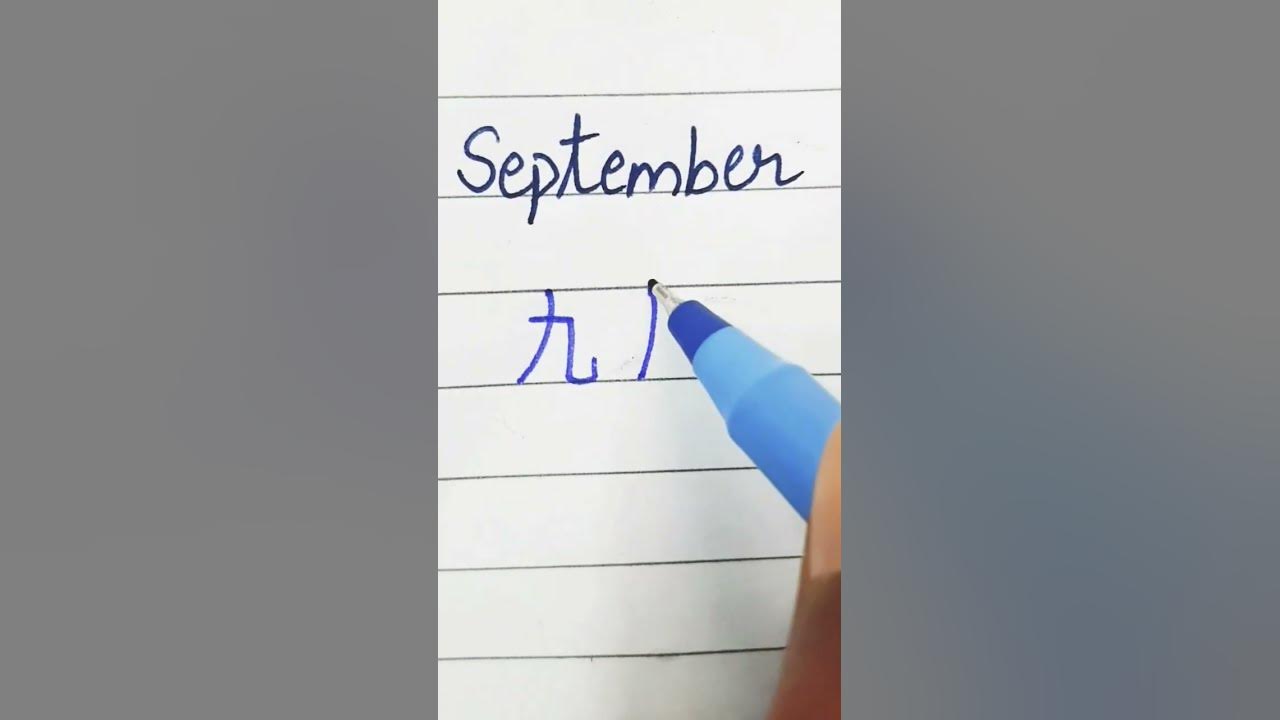 September
九